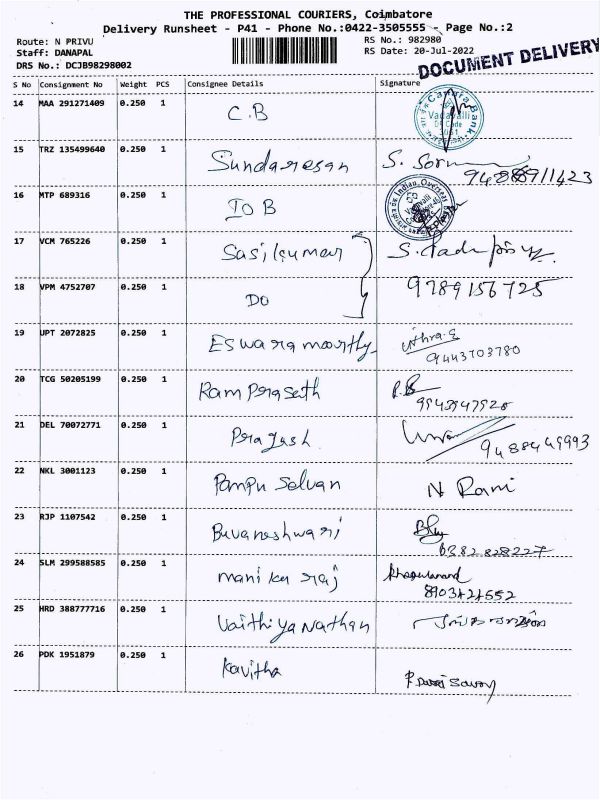 THE PROFESSIONAL COURIERS, Coimbatore
Delivery Runsheet - P41 - Phone No.:0422-3505555 - Page No.:2
Route: N PRIVU
RS No.: 982980
Staff: DANAPAL
RS Date: 20-Jul-2022
DRS No.: DCJB98298002
DOCUMENT DELIVERY
S No Consignment No Weight PCS Consignee Details Signature
14 MAA 291271409 0.250 1 C.B
Canara Bank
Vadavalli
15 TRZ 135499640 0.250 1 Sundaresan S.
16 MTP 689316 0.250 1 IOB
Indian Overseas
17 VCM 765226 0.250 1 Sasikumar S.
18 VPM 4752707 0.250 1 DO 9789156725
19 UPT 2072825 0.250 1 Eswaramoorthy
9443703780
20 TCG 50205199 0.250 1 Ram Praseth
21 DEL 70072771 0.250 1 Prajash
9488449993
22 NKL 3001123 0.250 1 Pampu Selvan N Rani
23 RJP 1107542 0.250 1 Buvaneshwari
6382828227
24 SLM 299588585 0.250 1 maniku raj
25 HRD 388777716 0.250 1 Vaithiyanathan
26 PDK 1951879 0.250 1 Kavitha